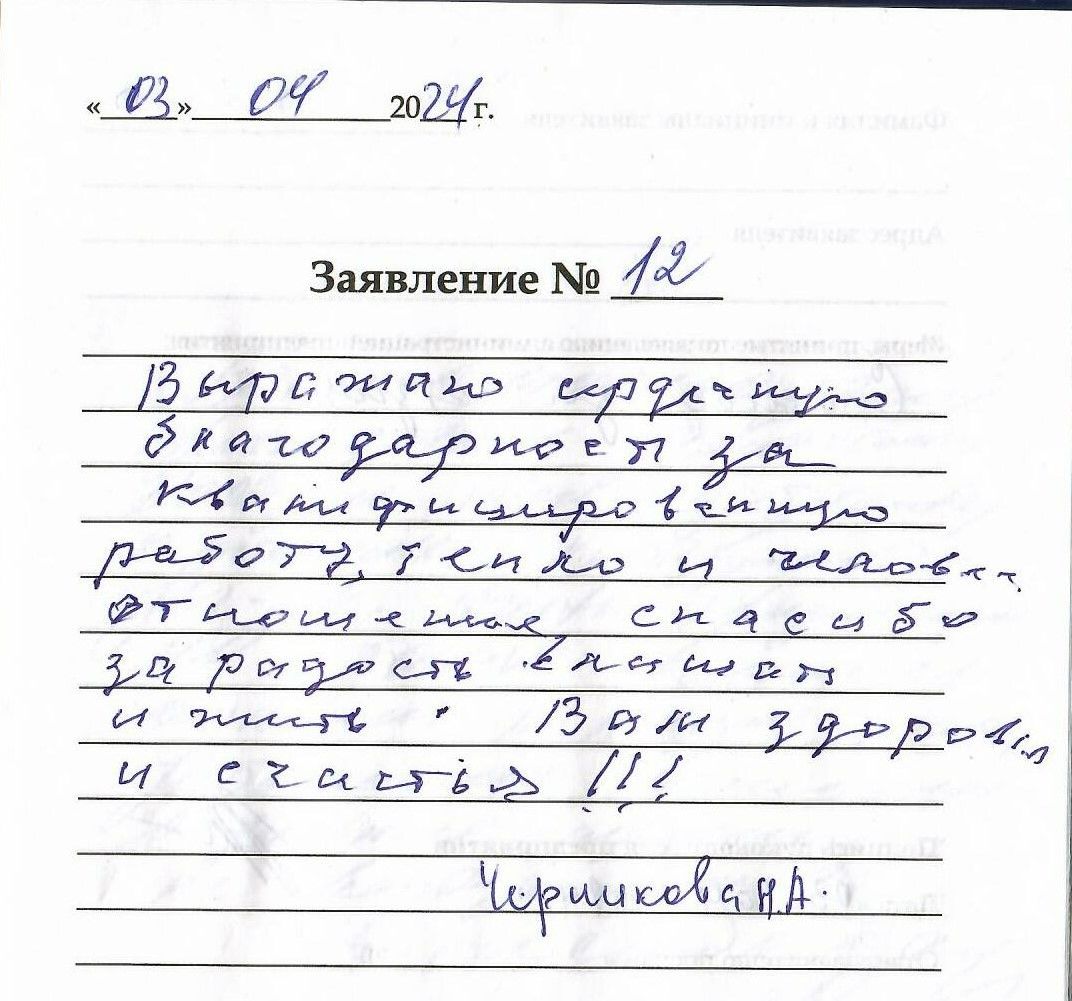 «03» 04 2024 г.
Заявление № 12
Выражаю сердечную
благодарность за
квалифицированную
работу, тепло и человеч.
отношение, спасибо
за радость слышать
и жить. Вам здоровья
и счастья!!!
Н.А.